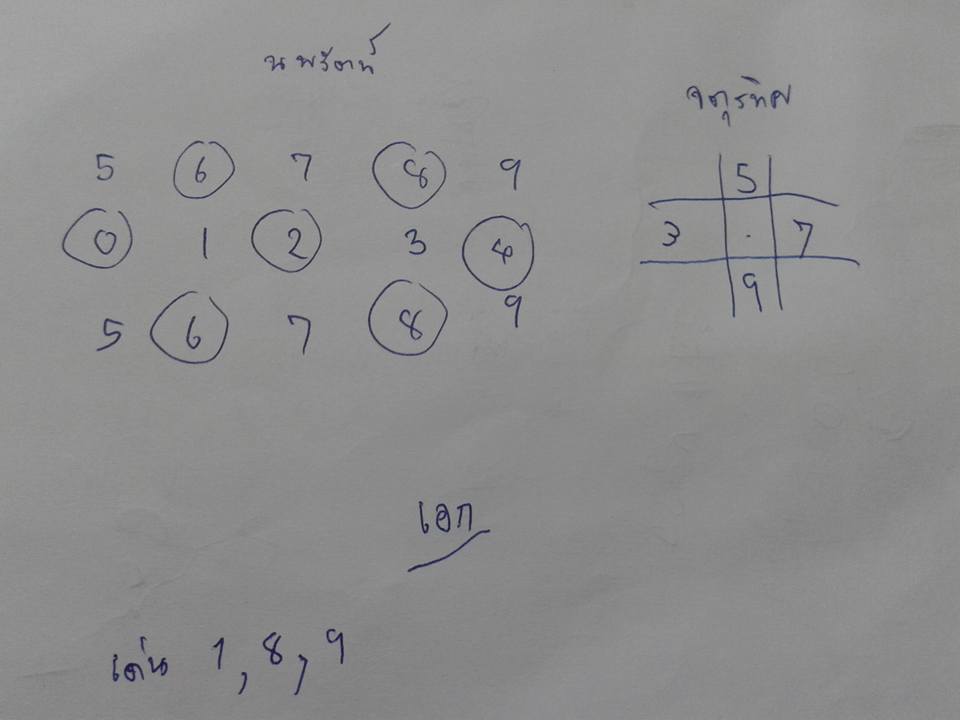 นพรัตน์
จตุรทิศ
5 6 7 8 9
0 1 2 3 4
5 6 7 8 9
5
3 . 7
9
เอก
เด่น 1, 8, 9